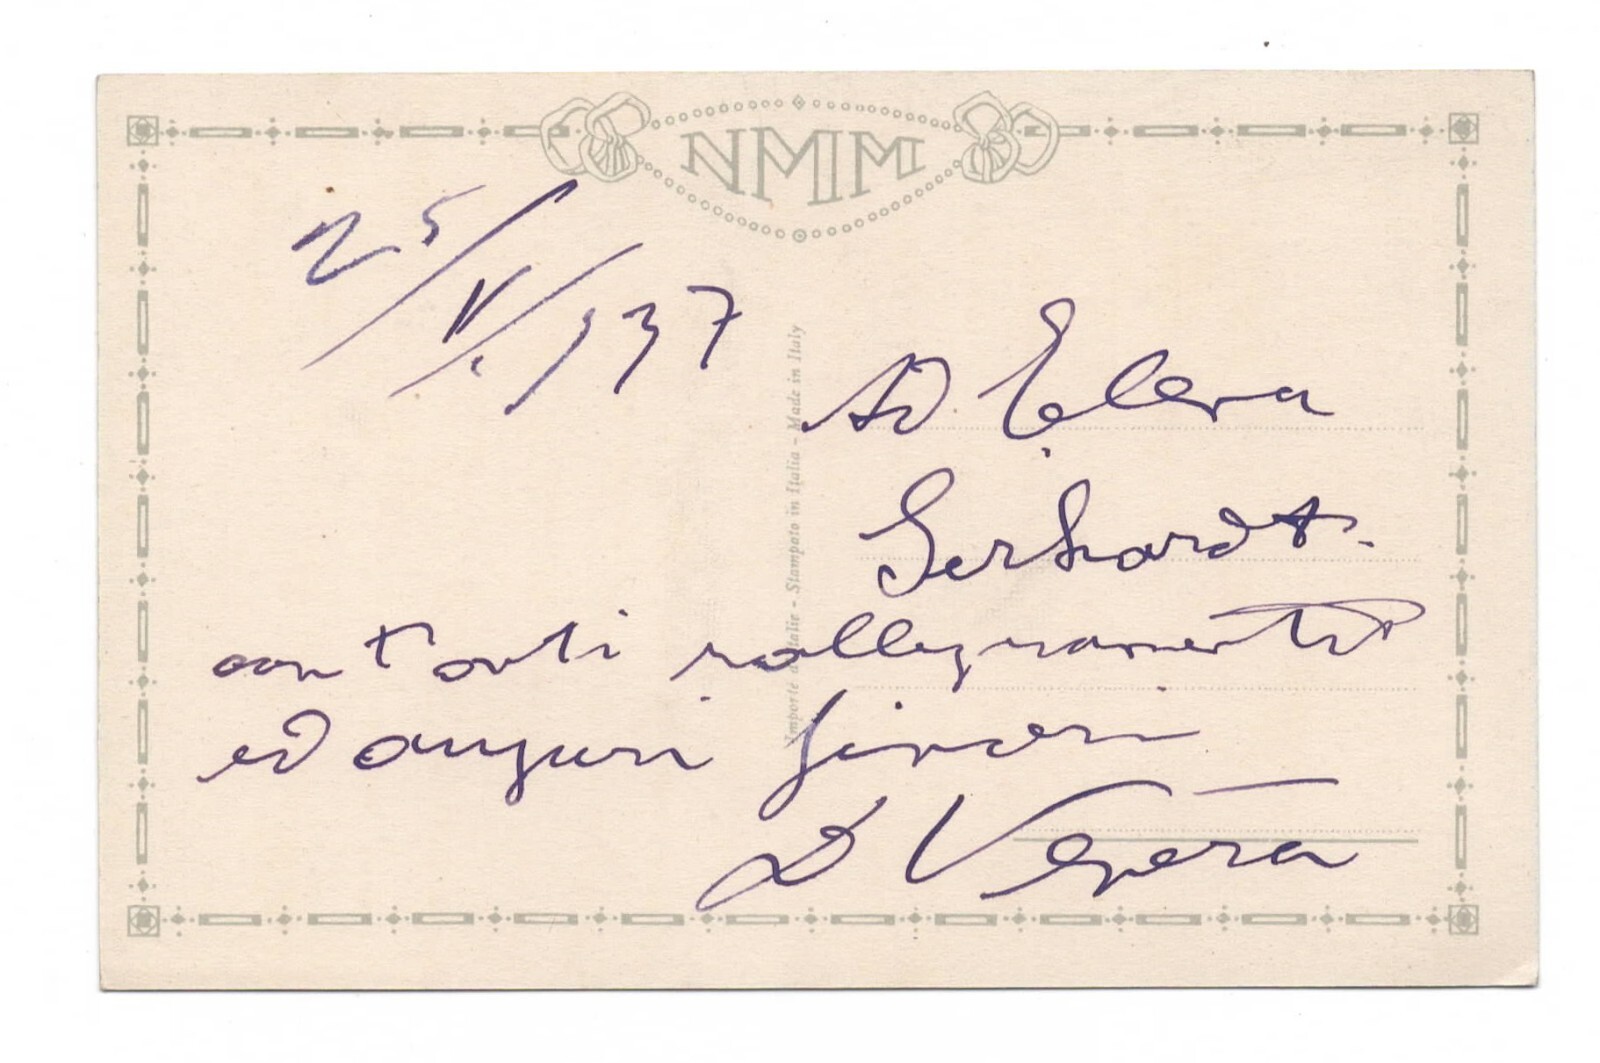 NMM
25/V/937
Ad Elena
Gerhardt.
con tanti rallegramenti
ed auguri sinceri
Importé d'Italie - Stampato in Italia - Made in Italy